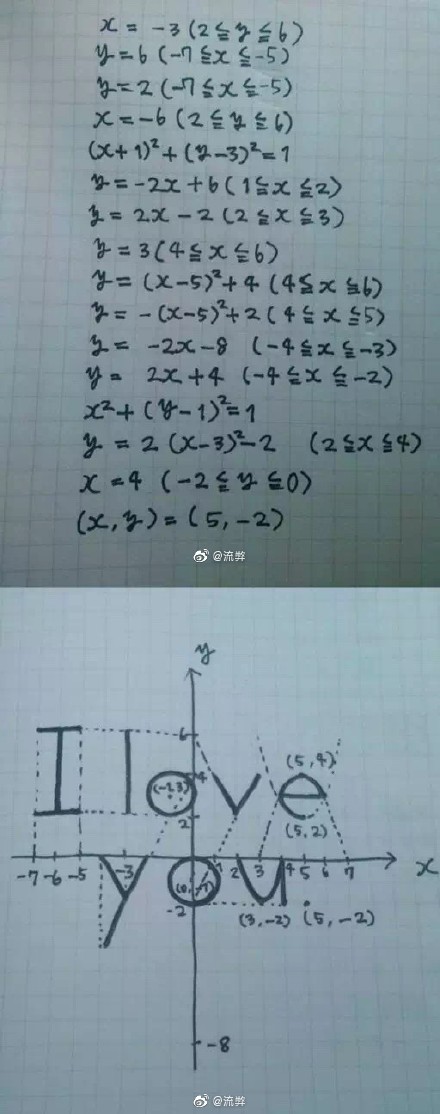 x = -3 (2 ≦ y ≦ 6)
y = 6 (-7 ≦ x ≦ -5)
y = 2 (-7 ≦ x ≦ -5)
x = -6 (2 ≦ y ≦ 6)
(x+1)² + (y-3)² = 1
y = -2x + 6 (1 ≦ x ≦ 2)
y = 2x - 2 (2 ≦ x ≦ 3)
y = 3 (4 ≦ x ≦ 6)
y = (x-5)² + 4 (4 ≦ x ≦ 6)
y = -(x-5)² + 2 (4 ≦ x ≦ 5)
y = -2x - 8 (-4 ≦ x ≦ -3)
y = 2x + 4 (-4 ≦ x ≦ -2)
x² + (y-1)² = 1
y = 2 (x-3)² - 2 (2 ≦ x ≦ 4)
x = 4 (-2 ≦ y ≦ 0)
(x, y) = (5, -2)
@流弊
y
6
I love
(5, 4)
4
(-1,3)
2
(5, 2)
-7 -6 -5 -3 1 2 3 4 5 6 7 x
you
(0, -1)
-2
(3, -2) (5, -2)
-8
@流弊